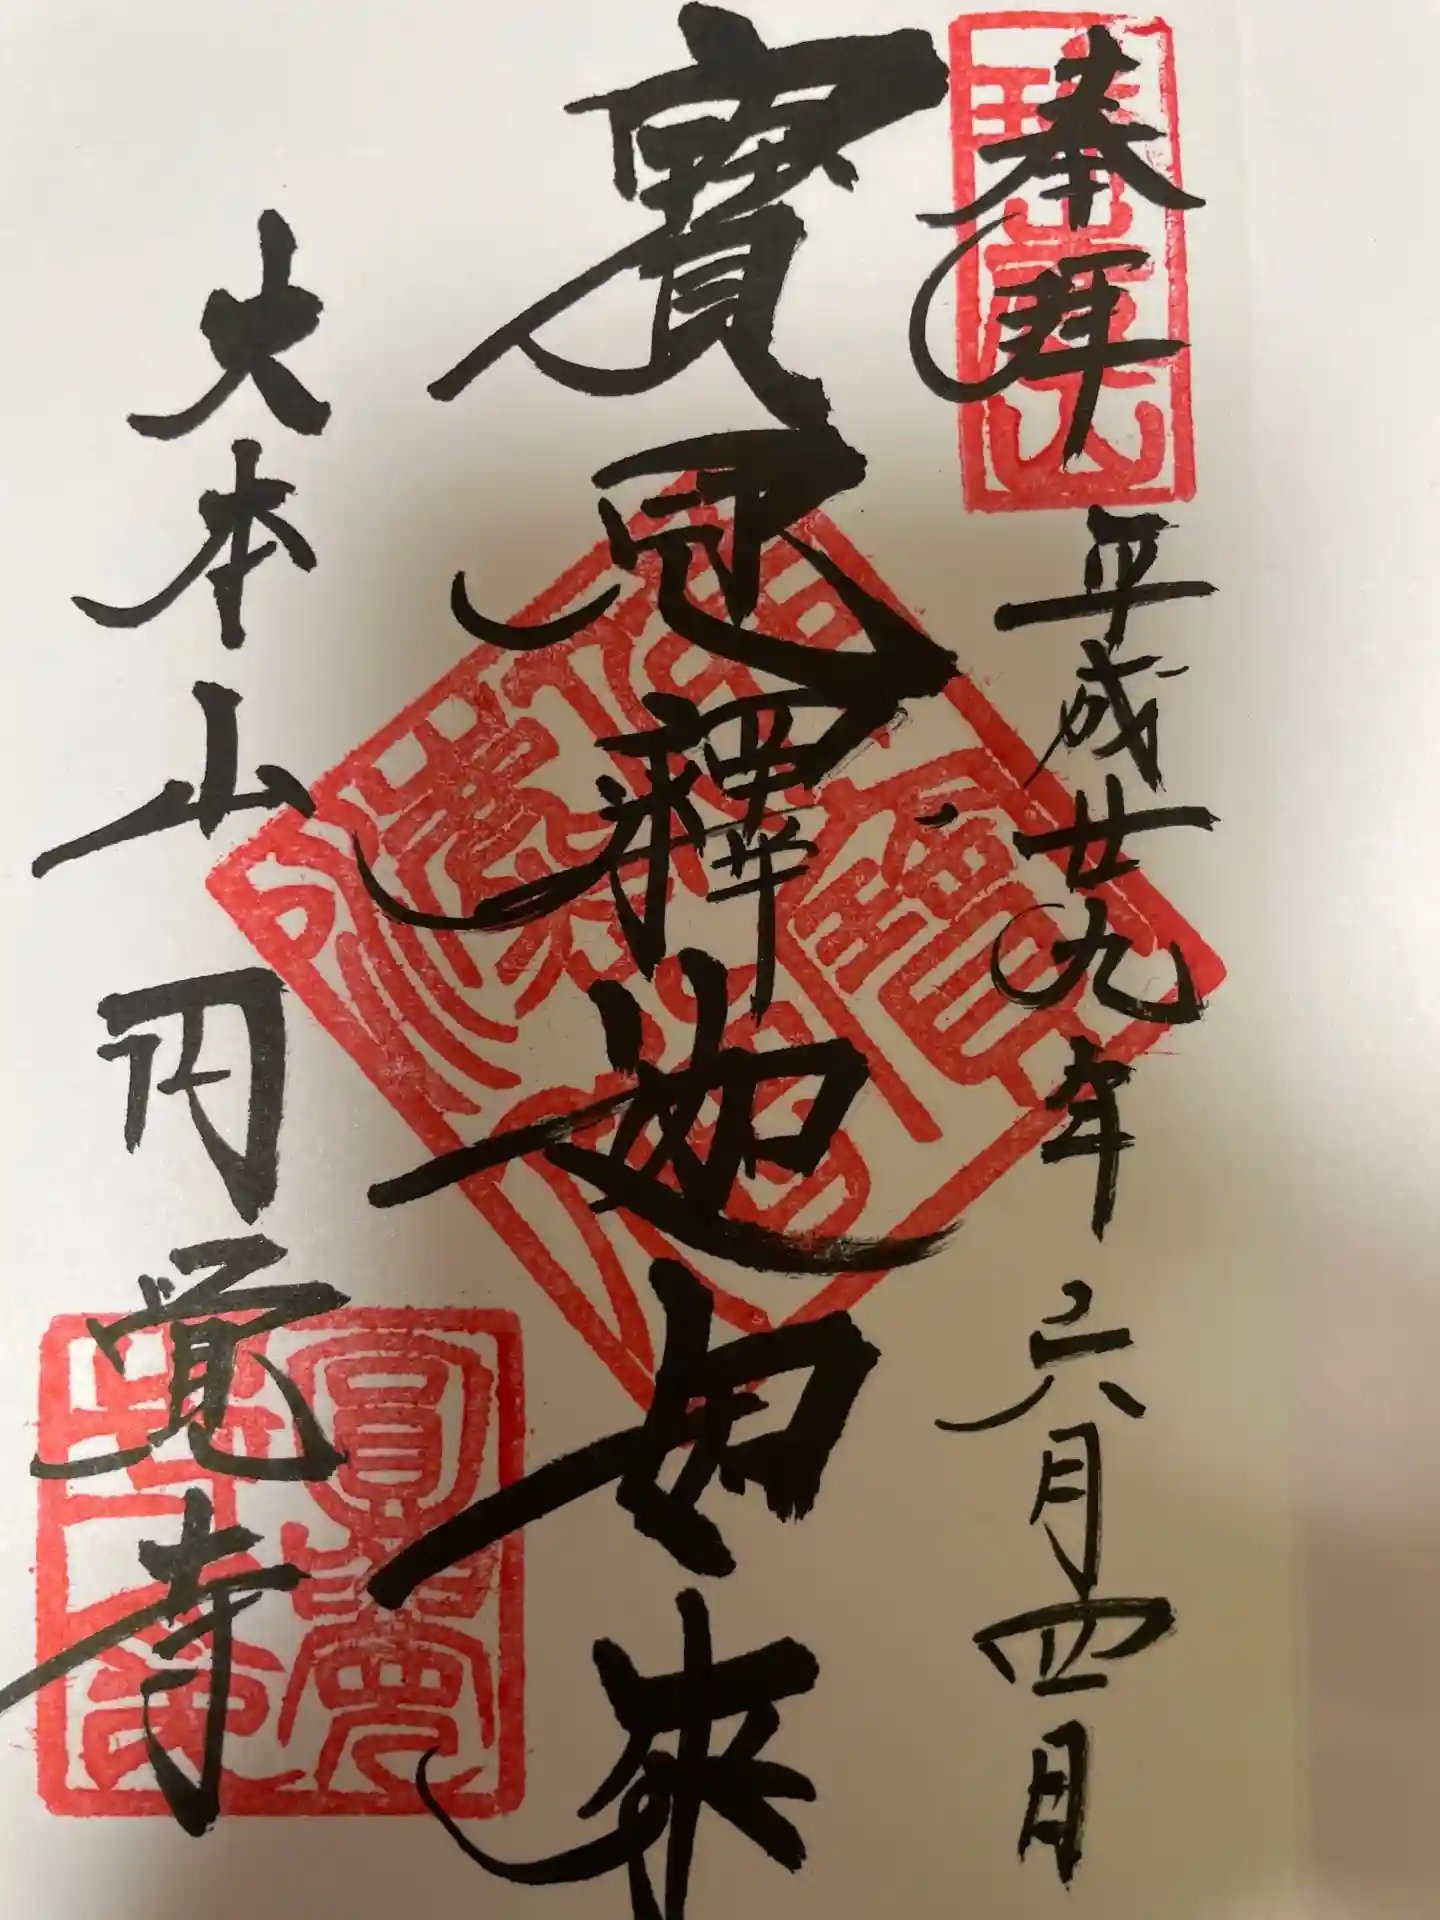 奉拜
平成廿九年六月四日
寶冠釋迦如来
大本山円覚寺